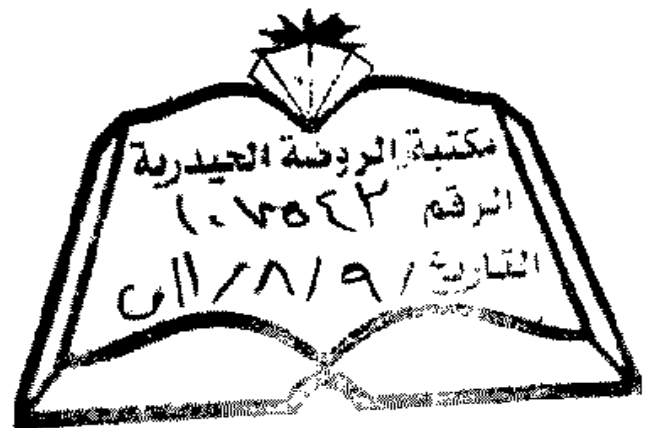 مكتبة الروضة الحيدرية
الرقم ١٠٧٥٤٢
التاريخ / ٩ / ٨ / ١١